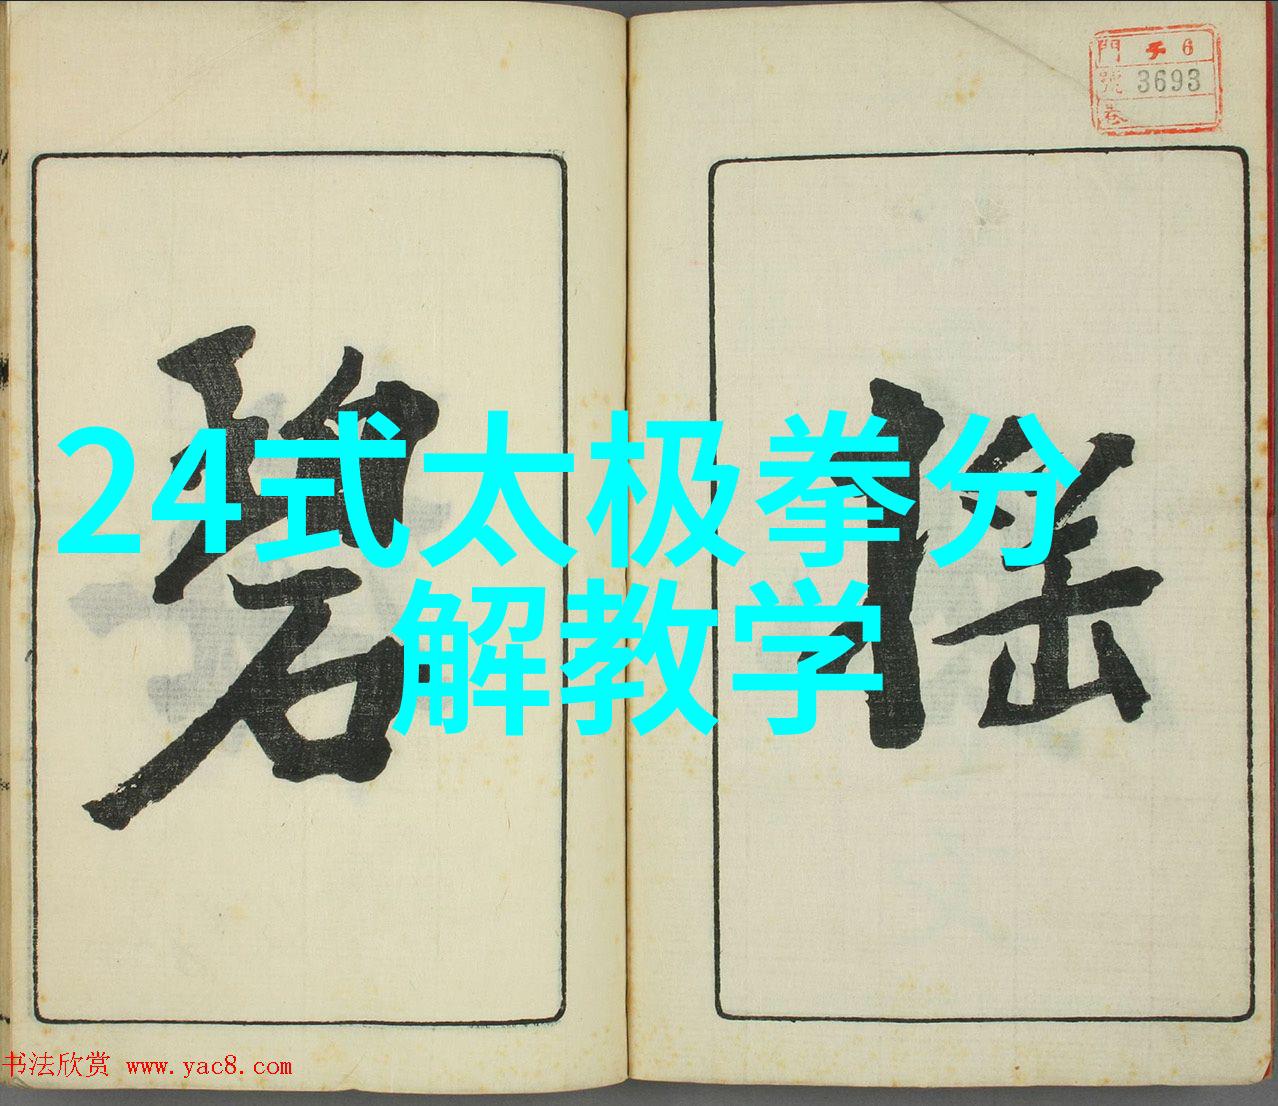 門 チ 6
號 3693
卷
碧
24式太极拳分
解教学
书法欣赏 www.yac8.com